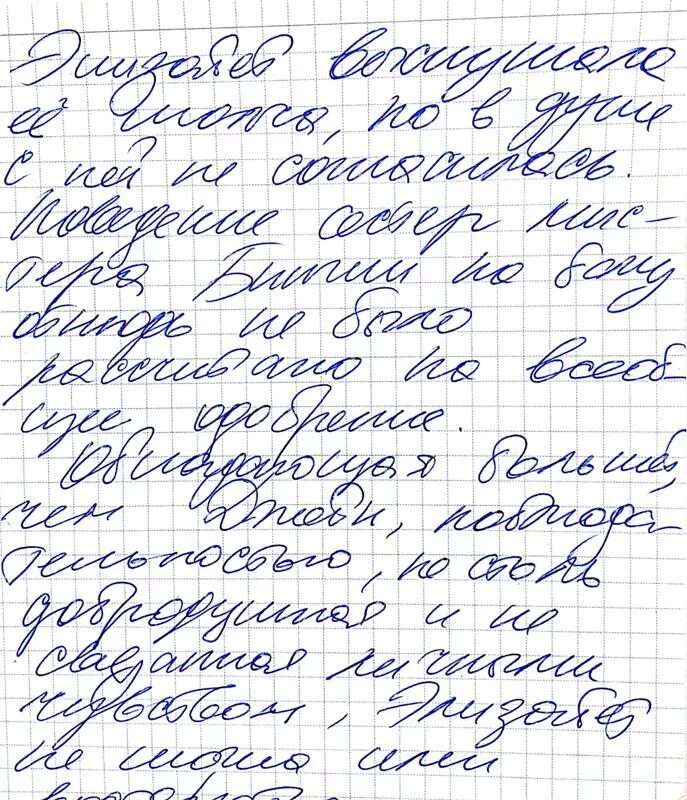 Элизабет выслушала
её молча, но в душе
с ней не согласилась.
Поведение сестер мис-
тера Бингли на балу
отнюдь не было
рассчитано на всеоб-
щее одобрение.
Обладающая большей,
чем Джейн, наблюда-
тельностью, не столь
добродушная и не
связанная личным
чувством, Элизабет
не могла ими